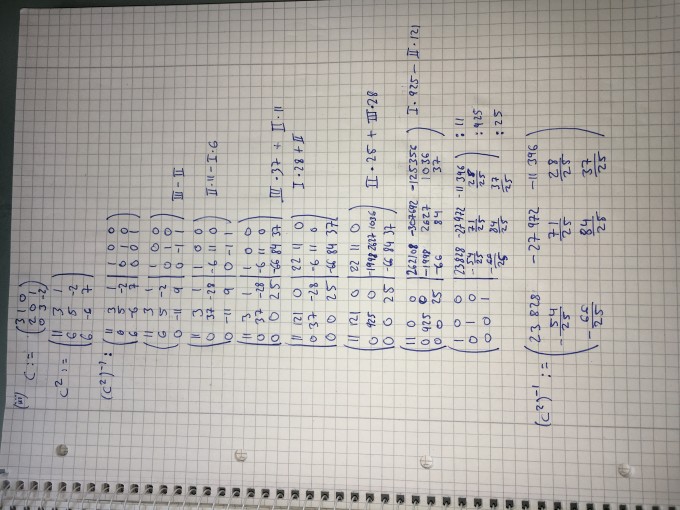 (iii) C := ( 3 1 0
2 0 1
0 3 -2 )
C² := ( 11 3 1
6 5 -2
6 -6 7 )
(C²)⁻¹ : ( 11 3 1 | 1 0 0
6 5 -2 | 0 1 0
6 -6 7 | 0 0 1 )
( 11 3 1 | 1 0 0
6 5 -2 | 0 1 0
0 -11 9 | 0 -1 1 ) III - II
( 11 3 1 | 1 0 0
0 37 -28 | -6 11 0
0 -11 9 | 0 -1 1 ) II·11 - I·6
( 11 3 1 | 1 0 0
0 37 -28 | -6 11 0
0 0 25 | -66 84 37 ) III·37 + II·11
( 11 121 0 | 22 11 0
0 37 -28 | -6 11 0
0 0 25 | -66 84 37 ) I·28 + II
( 11 121 0 | 22 11 0
0 925 0 | -1998 2627 1036
0 0 25 | -66 84 37 ) II·25 + III·28
( 11 0 0 | 262108 -307692 -125356
0 425 0 | -1998 2627 1036
0 0 25 | -66 84 37 ) I·925 - II·121
( 1 0 0 | 23828 27972 -11396
0 1 0 | -54/25 71/25 28/25
0 0 1 | -66/25 84/25 37/25 ) :11
:925
:25
(C²)⁻¹ := ( 23 828 -27 972 -11 396
-54/25 71/25 28/25
-66/25 84/25 37/25 )